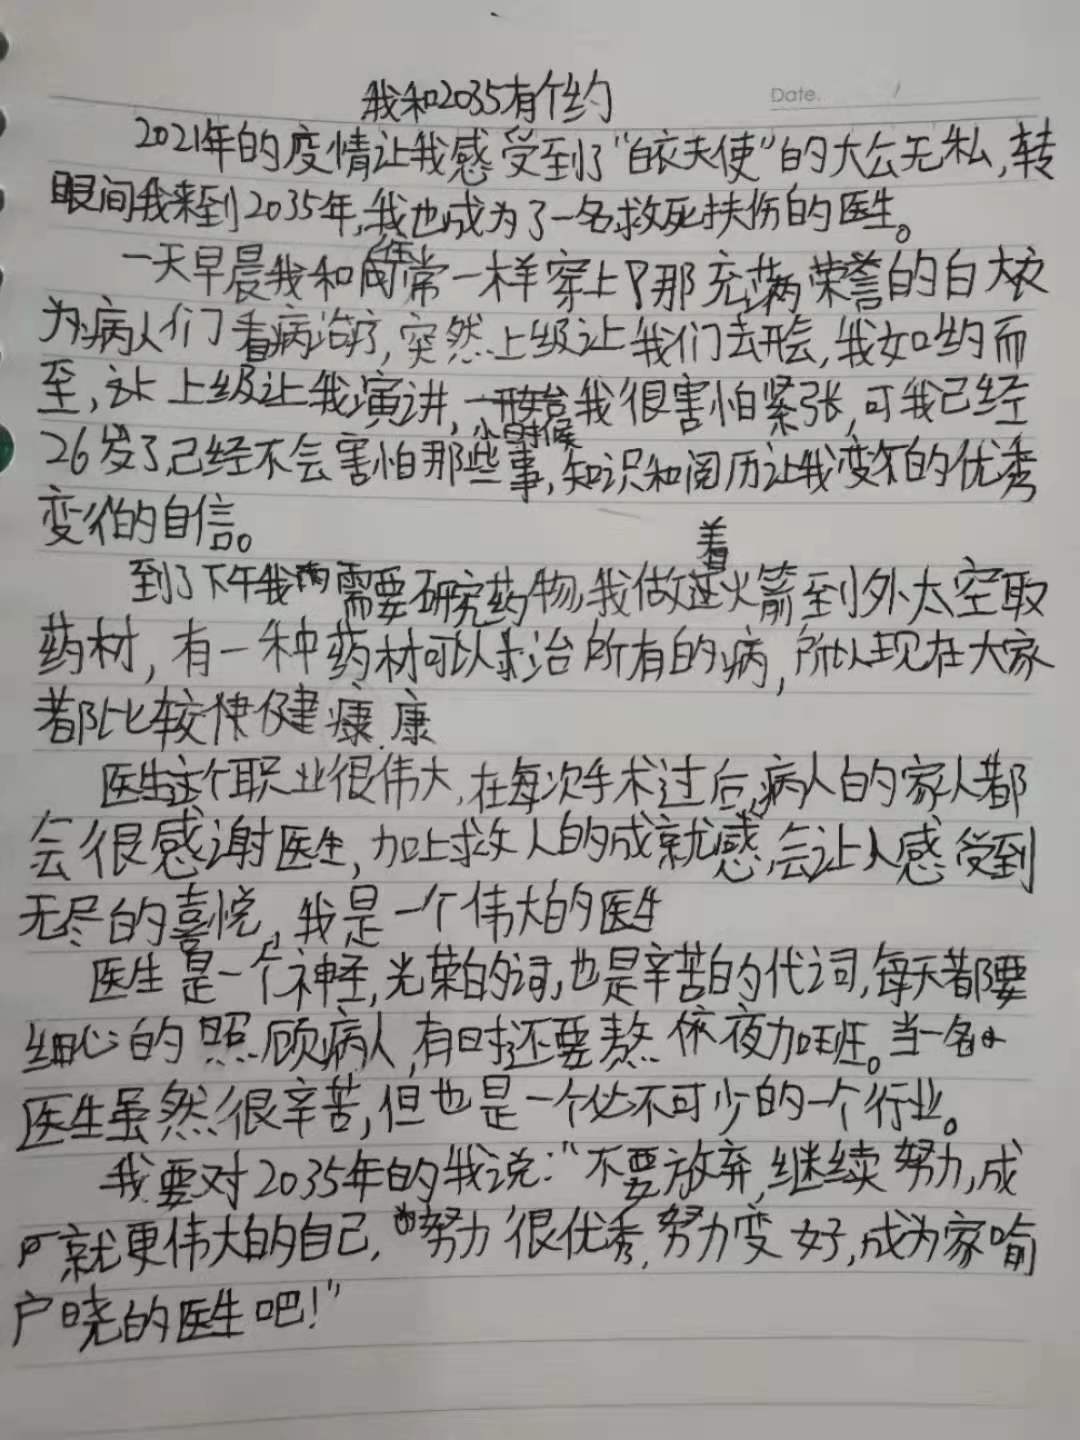 我和2035有个约
Date.
2021年的疫情让我感受到了“白衣天使”的大公无私,转
眼间我来到2035年,我也成为了一名救死扶伤的医生。
一天早晨我和往常一样穿上了那充满荣誉的白大衣
为病人们看病治疗,突然上级让我们去开会,我如约而
至,上级让我演讲,一开始我很害怕紧张,可我已经
26岁了已经不会害怕小时候那些事,知识和阅历让我变的优秀
变的自信。
到了下午我需要研究药物,我做着火箭到外太空取
药材,有一种药材可以救治所有的病,所以现在大家
都比较健康
医生这个职业很伟大,在每次手术过后,病人的家人都
会很感谢医生,加上救人的成就感,会让人感受到
无尽的喜悦,我是一个伟大的医生
医生是一个神圣,光荣的词,也是辛苦的代词,每天都要
细心的照顾病人,有时还要熬夜加班。当一名
医生虽然很辛苦,但也是一个必不可少的一个行业。
我要对2035年的我说:“不要放弃,继续努力,成
就更伟大的自己,努力很优秀,努力变好,成为家喻
户晓的医生吧!”